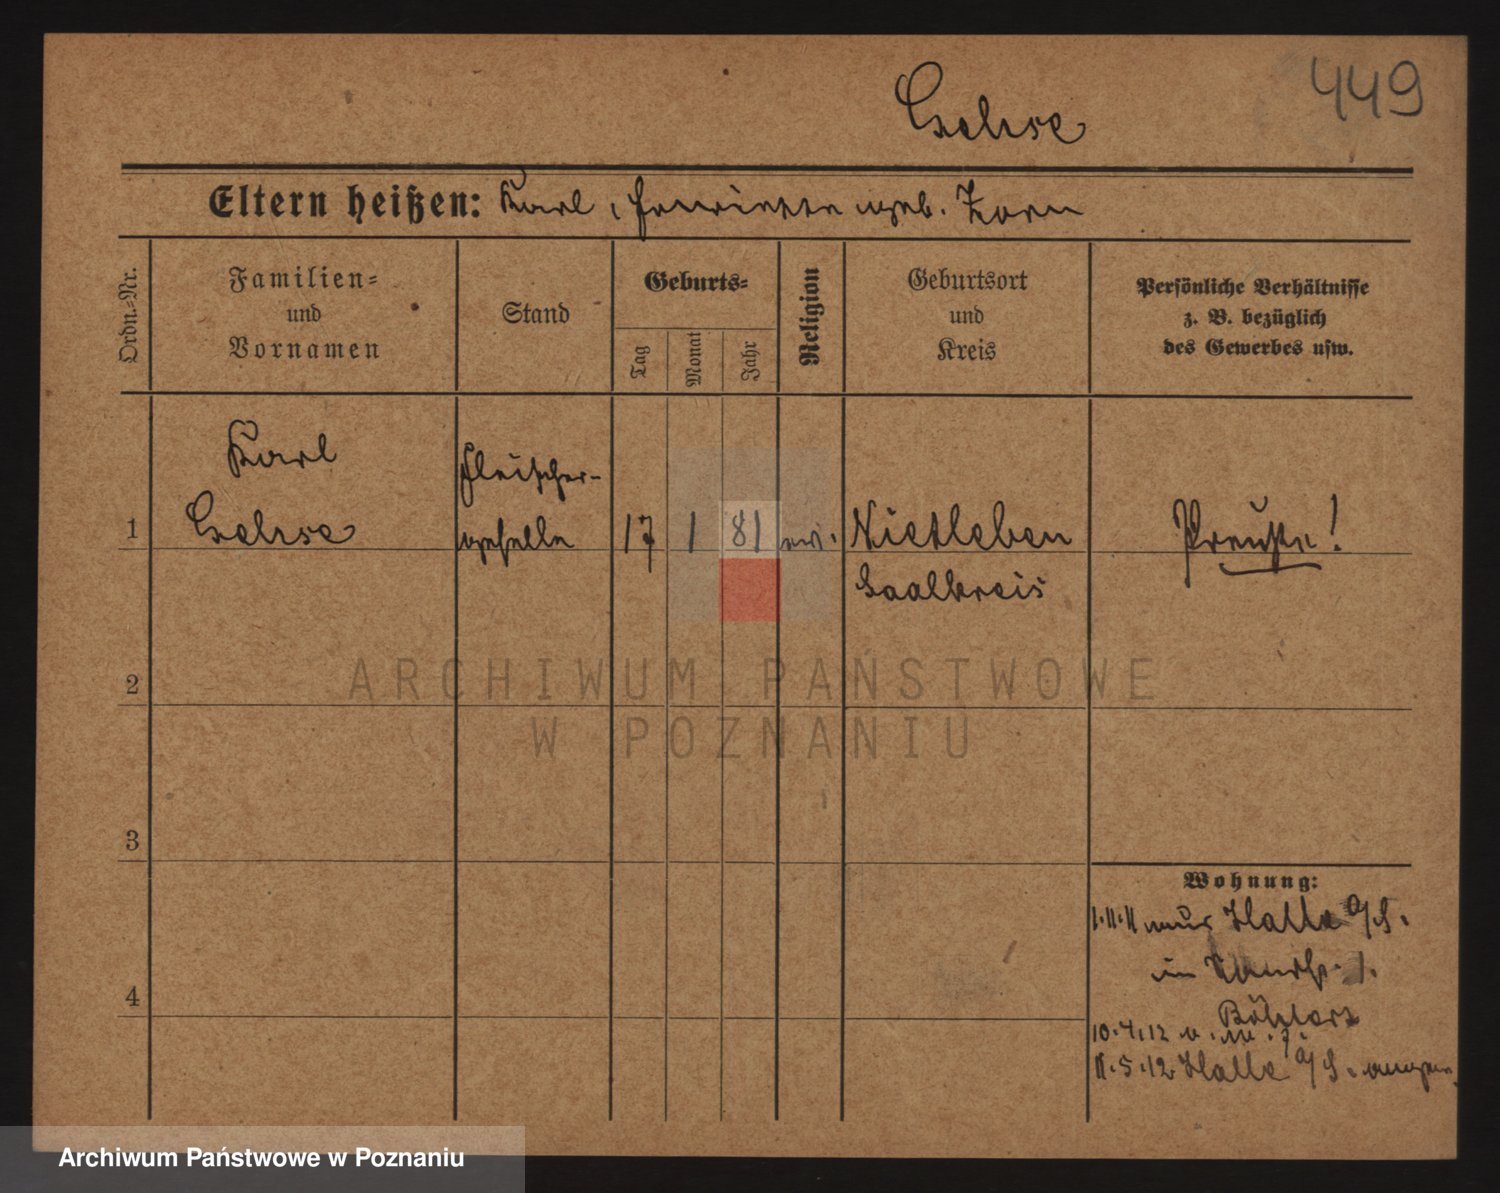 449
Eltern heißen: Karl, Henriette geb. Zorn
Ordn.-Nr.
Familien-
und
Vornamen
Stand
Geburts-
Tag
Monat
Jahr
Religion
Geburtsort
und
Kreis
Persönliche Verhältnisse
z. B. bezüglich
des Gewerbes usw.
Karl
Fleischer-
1
geselle
17
1
81
ev.
Nietleben
Saalkreis
Preuße!
2
ARCHIWUM PAŃSTWOWE
W POZNANIU
3
Wohnung:
1.11.11 Halle a/S.
4
10.4.12
11.5.12 Halle a/S.
Archiwum Państwowe w Poznaniu